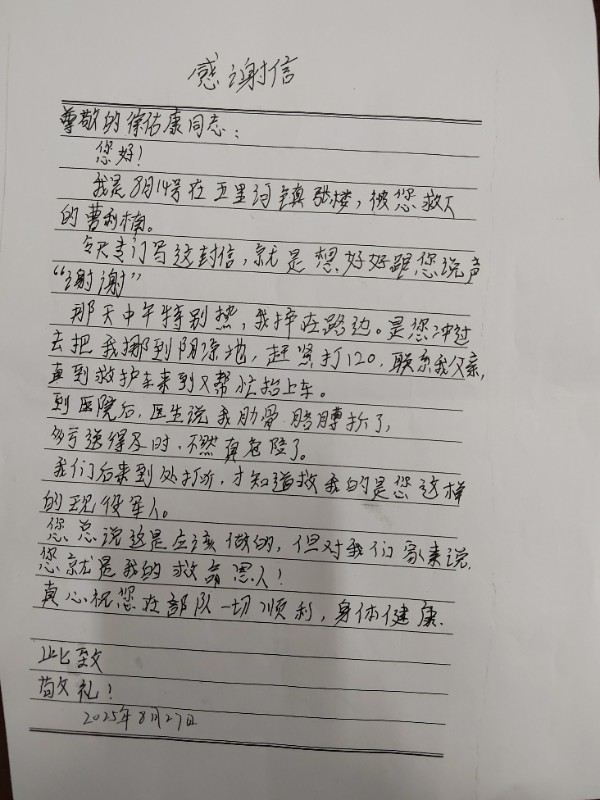 感谢信
尊敬的徐佑康同志:
您好!
我是8月14号在五里河镇张楼,被您救下
的曹利楠。
今天专门写这封信,就是想好好跟您说声
“谢谢”
那天中午特别热,我摔在路边。是您冲过
去把我挪到阴凉地,赶紧打120,联系我父亲,
直到救护车来到又帮忙抬上车。
到医院后,医生说我肋骨 胳膊折了,
多亏送得及时,不然真危险了。
我们后来到处打听,才知道救我的是您这样
的现役军人。
您总说这是应该做的,但对我们家来说.
您就是我的救命恩人!
真心祝您在部队一切顺利,身体健康.
此致
敬礼!
2025年8月27日